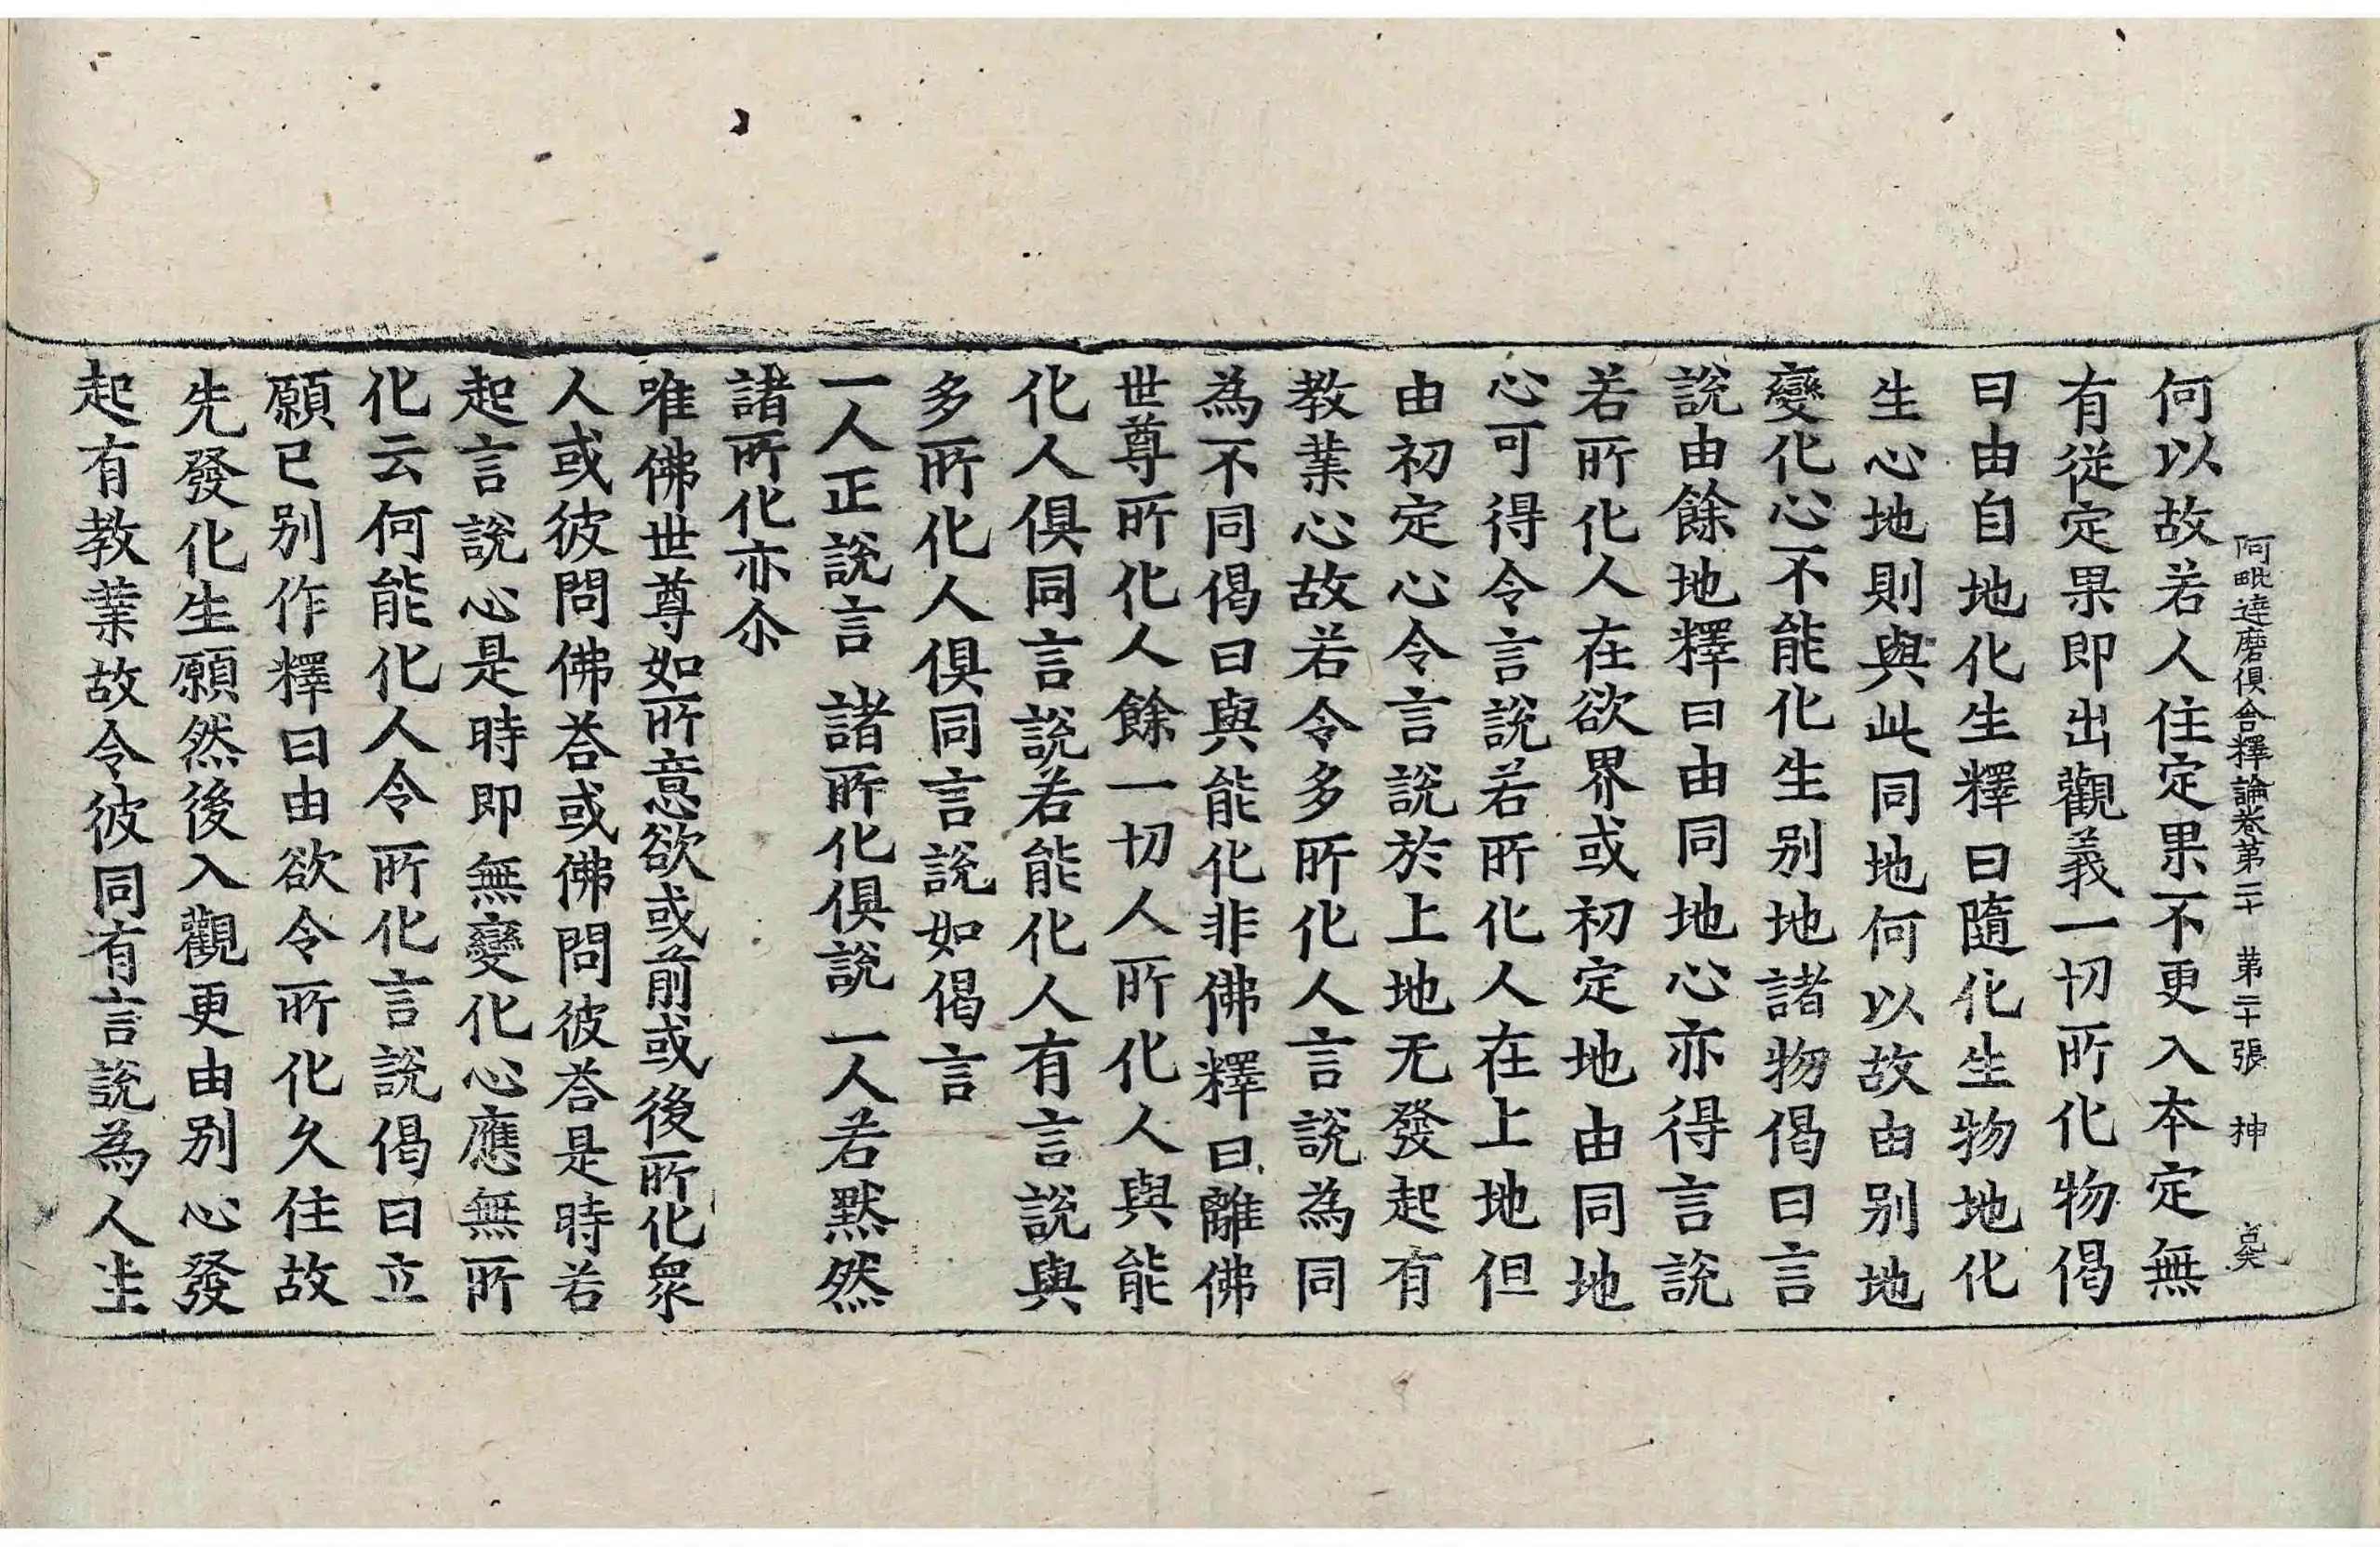 阿毗達磨俱舍釋論卷第二十　第二十張　神
何以故若人住定果不更入本定無
有從定果即出觀義一切所化物偈
曰由自地化生釋曰隨化生物地化
生心地則與此同地何以故由別地
變化心不能化生別地諸物偈曰言
說由餘地釋曰由同地心亦得言說
若所化人在欲界或初定地由同地
心可得令言說若所化人在上地但
由初定心令言說於上地无發起有
教業心故若令多所化人言說為同
為不同偈曰與能化非佛釋曰離佛
世尊所化人餘一切人所化人與能
化人俱同言說若能化人有言說與
多所化人俱同言說如偈言
一人正說言　諸所化俱說　一人若黙然
諸所化亦尒
唯佛世尊如所意欲或前或後所化衆
人或彼問佛荅或佛問彼荅是時若
起言說心是時即無變化心應無所
化云何能化人令所化言說偈曰立
願已别作釋曰由欲令所化久住故
先發化生願然後入觀更由别心發
起有教業故令彼同有言說為人生